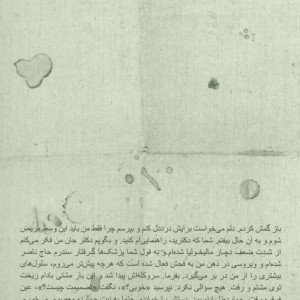 باز گمش کردم. دلم می‌خواست برایش درددل کنم و بپرسم چرا فقط من باید این وسط مریض
شوم و به آن حال بیفتم. شما که دکترید، راهنمایی‌ام کنید. و بگویم دکتر جان من فکر می‌کنم
از شدت ضعف دچار مالیخولیا شده‌ام و- به قول شما پزشک‌ها گرفتار سندرم حاج ناصر
شده‌ام و ویروسی در ذهن من به فحش فعال شده است که هرچه پیش‌تر می‌روم، سلول‌های
بیشتری را از من در بر می‌گیرد. بفرما. سروکله‌اش پیدا شد و این بار مشتی بادام ریخت
توی مشتم و رفت. هیچ سؤالی نکرد. نپرسید «خوبی؟»، نگفت «عصمیت چیست؟»، عین